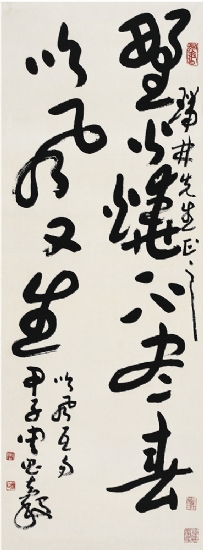 瑞林先生正之
野火燒不盡春
吹風又生
吹風互
甲子